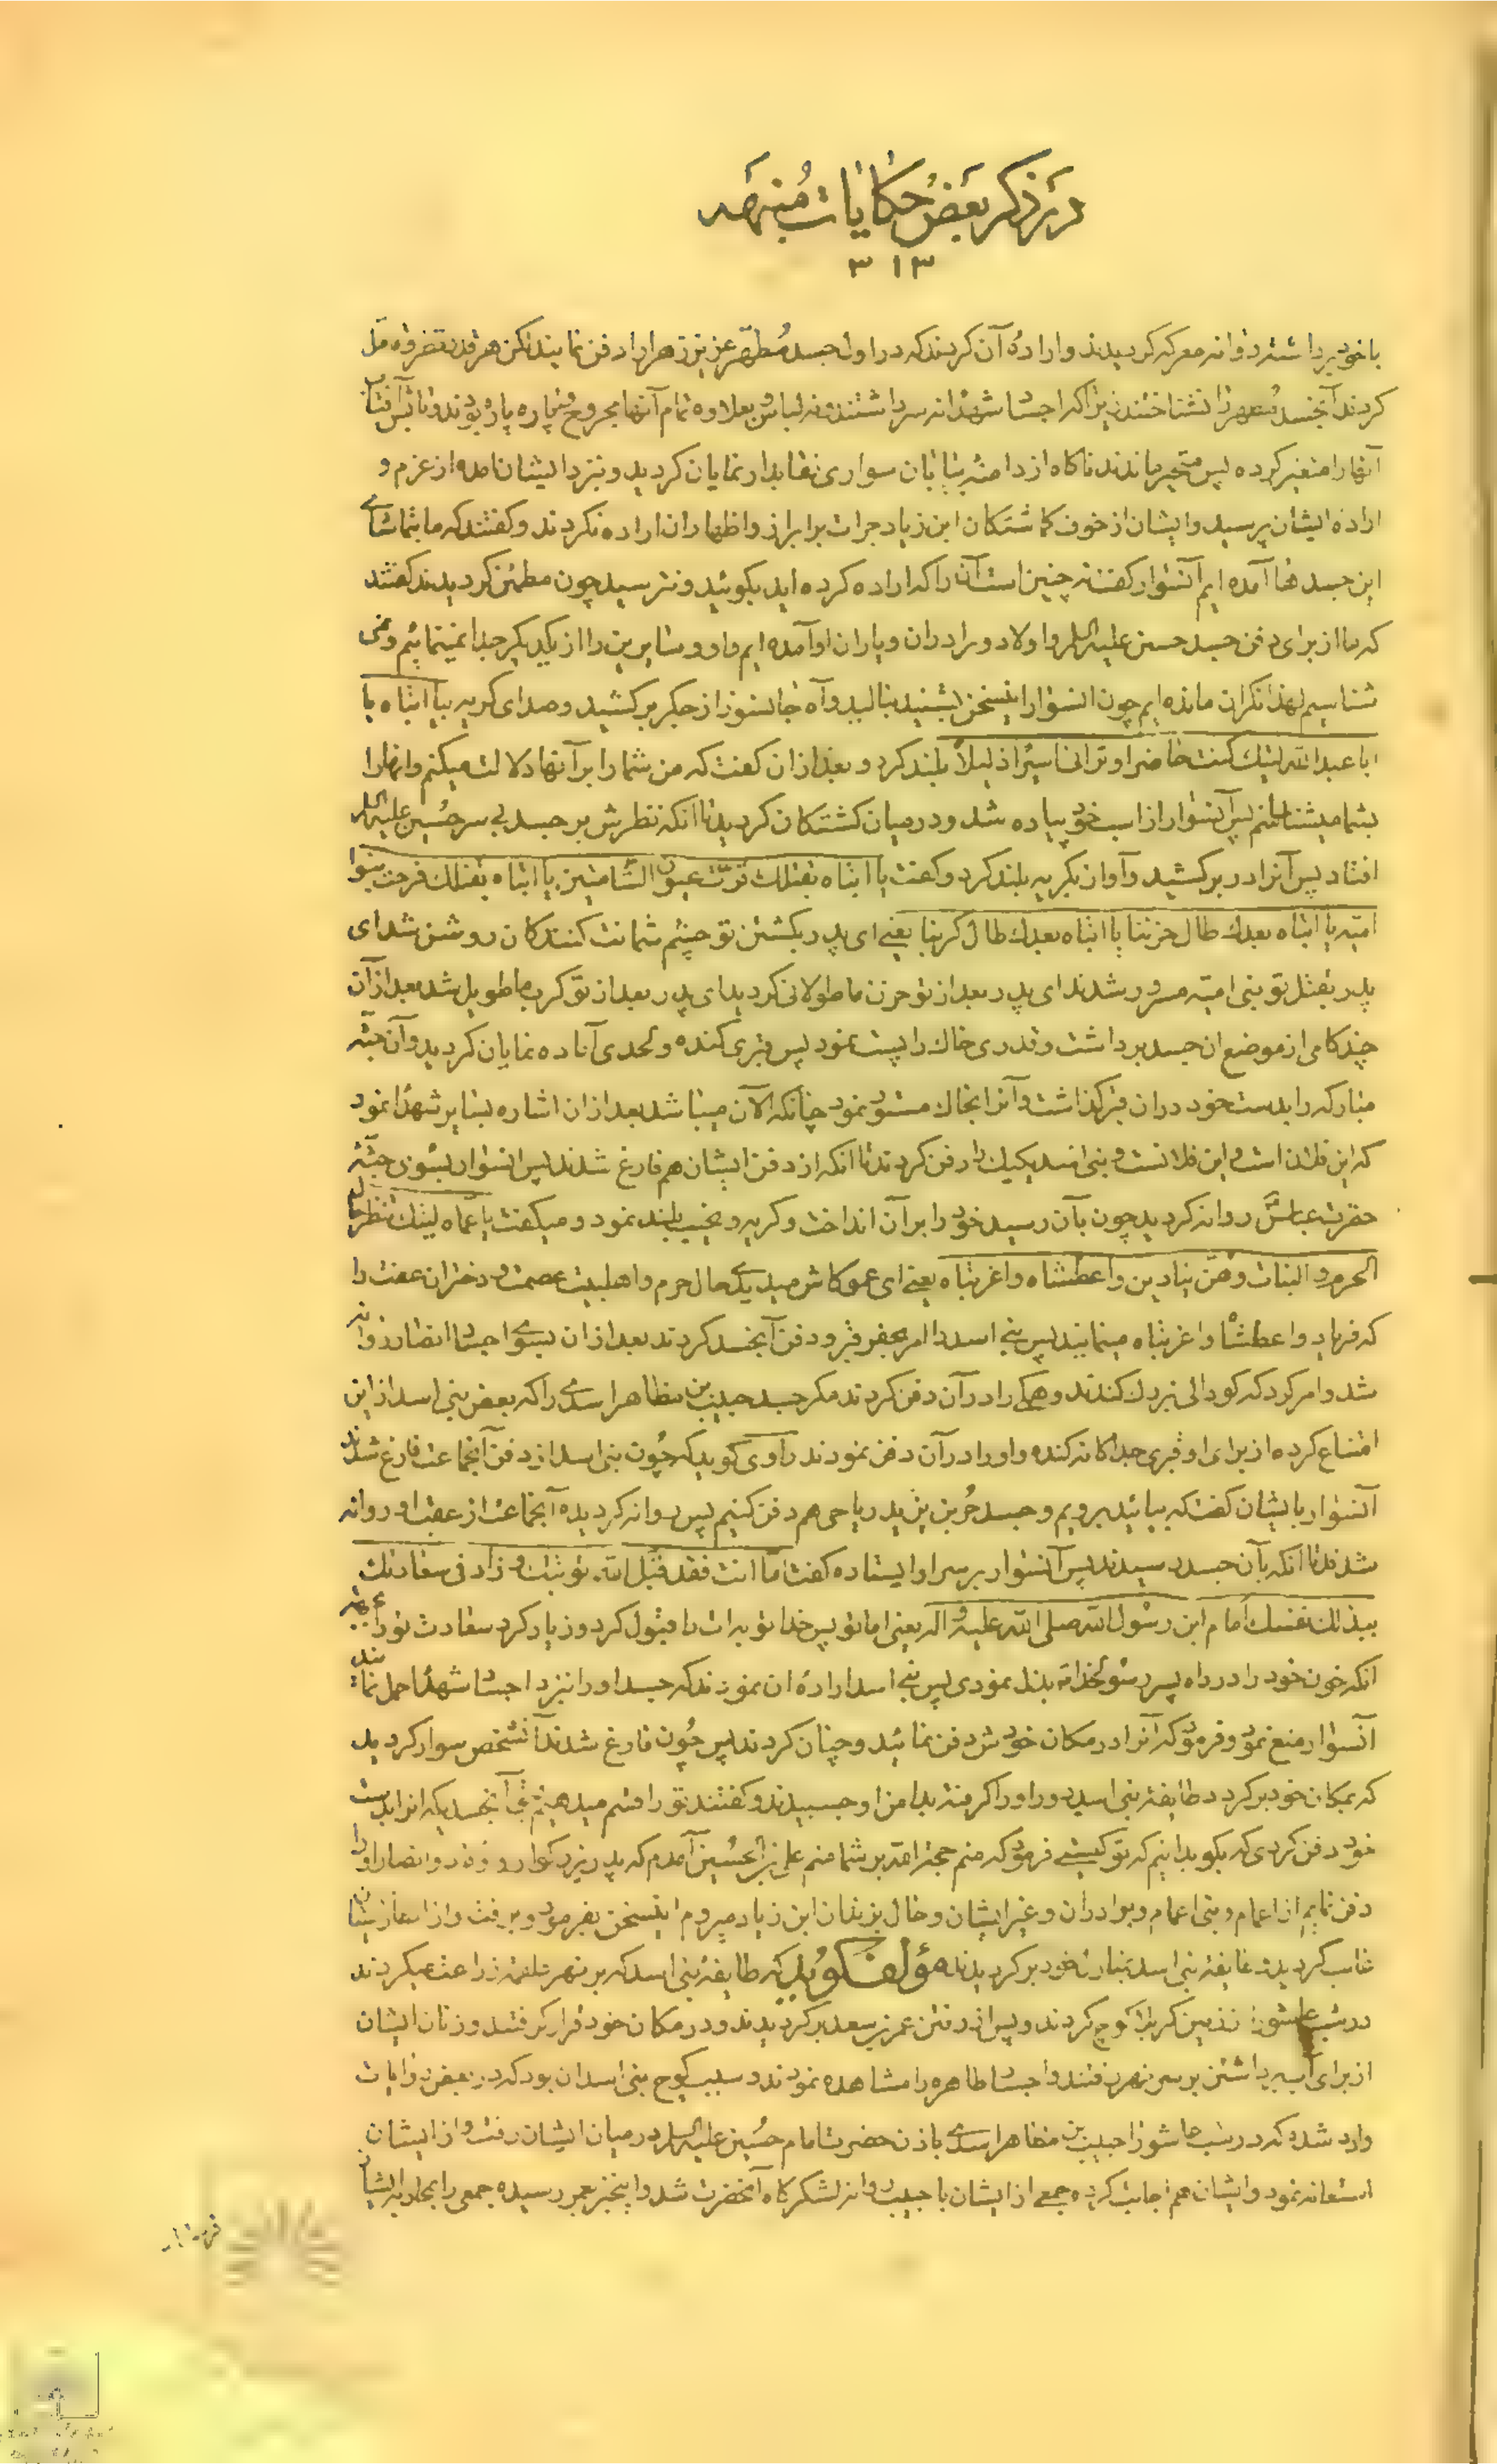 در ذکر بعض حکایات منبهه
۳۱۳
با خود برداشته روانه معرکه کردیدند و اراده آن کردند که در اول جسد مطهر عزیز زهرا را دفن نمایند لکن هر قدر تفرقه
کردند آن جسد مطهر را نشناختند زیرا که اجساد شهدا نه سر داشتند و نه لباس و بعلاوه تمام آنها مجروح و پاره پاره بودند و تابش آفتاب
آنها را متغیر کرده پس متحیر ماندند ناکاه از دامنه بیابان سواری نقابدار نمایان کردید و نزد ایشان آمده از عزم و
اراده ایشان پرسید و ایشان از خوف کماشتکان ابن زیاد جرات بر ابراز و اظهار ان اراده نکردند و کفتند که ما بتماشای
این جسدها آمده ایم آنسوار کفت نه چنین است آن را که اراده کرده اید بکوئید و نترسید چون مطمئن کردیدند کفتند
که ما از برای دفن جسد حسین علیه السلام و اولاد و برادران و یاران او آمده ایم و او و سایرین را از یکدیکر جدا نمینمائیم و نمی
شناسیم لهذا نکران مانده ایم چون انسوار اینسخن بشنید بنالید و آه جانسوز از جکر برکشید و صدای کریه بیا ابتاه یا
ابا عبد الله لیتک کنت حاضرا و ترانی اسیرا ذلیلا بلند کرد و بعد ازان کفت که من شما را بر آنها دلالت میکنم و انها را
بشما میشناسانم پس آنسوار از اسب خود پیاده شد و در میان کشتکان کردید تا انکه نظرش بر جسد بی سر حسین علیه السلام
افتاد پس آنرا در بر کشید و آواز بکریه بلند کرد و کفت یا ابتاه بقتلک قرت عیون الشامتین یا ابتاه بقتلک فرحت بنوا
امیه یا ابتاه بعدک طال حزننا یا ابتاه بعدک طال کربنا یعنی ای پدر بکشتن تو چشم شماتت کنندکان روشن شد ای
پدر بقتل تو بنی امیه مسرور شدند ای پدر بعد از تو حزن ما طولانی کردید ای پدر بعد از تو کرب ما طویل شد بعد از آن
چند کامی از موضع ان جسد برداشت و قدری خاک را پست نمود پس قبری کنده و لحدی آماده نمایان کردید و آن جثه
مبارکه را بدست خود در ان قبر کذاشت و آنرا بخاک مستور نمود چنانکه الآن میباشد بعد از ان اشاره بسایر شهدا نمود
که این فلان است و این فلانست و بنی اسد یکیک را دفن کردند تا انکه از دفن ایشان هم فارغ شدند پس انسوار بسوی جثه
حضرت عباس روانه کردید چون بآن رسید خود را بر آن انداخت و کریه و نحیب بلند نمود و میکفت یا عماه لیتک تنظر حال
الحرم و البنات و هن ینادین واعطشاه واغربتاه یعنی ای عمو کاش میدیدی حال حرم و اهلبیت عصمت و دختران عفت را
که فریاد واعطشاه واغربتاه مینمایند پس بنی اسد را امر بحفر قبر و دفن آنجسد کردند بعد ازان بسوی اجساد انصار روانه
شد و امر کرد که کودالی بزرک کندند و همکی را در آن دفن کردند مکر جسد حبیب بن مظاهر اسدی را که بعض بنی اسد از این
امتناع کرده از برای او قبری جداکانه کنده و او را در آن دفن نمودند راوی کوید که چون بنی اسد از دفن آنجماعت فارغ شدند
آنسوار بایشان کفت که بیائید برویم و جسد حر بن یزید ریاحی هم دفن کنیم پس روانه کردیده آنجماعت از عقب او روانه
شدند تا انکه بآن جسد رسیدند پس آنسوار بر سر او ایستاده کفت اما انت فقد قبل الله توبتک و زاد فی سعادتک
ببذلک نفسک امام ابن رسول الله صلی الله علیه و اله یعنی اما تو پس خدا توبه ات را قبول کرد و زیاد کرد سعادت تو را بجهة
انکه خون خود را در راه پسر رسولخدا بذل نمودی پس بنی اسد اراده ان نمودند که جسد او را نزد اجساد شهدا حمل نمایند
آنسوار منع نمود و فرمود که آنرا در مکان خودش دفن نمائید و چنان کردند پس چون فارغ شدند آنشخص سوار کردید
که بمکان خود برکردد طایفه بنی اسد دور او را کرفته بدامن او چسبیدند و کفتند تو را قسم میدهیم بحق آنجسدیکه انرا بدست
خود دفن کردی که بکو بدانیم که تو کیستی فرمود که منم حجة الله بر شما منم علی بن الحسین آمدم که پدر بزرکوار و و انصار او را
دفن نمایم از اعمام و بنی اعمام و برادران و غیر ایشان و حال بزندان ابن زیاد میروم اینسخن بفرمود و برفت و از ایشان
غائب کردید و طایفه بنی اسد بمنازل خود برکردیدند مؤلف کوید که طایفه بنی اسد که بر نهر علقمه زراعت میکردند
در شب عاشورا از زمین کربلا کوچ کردند و پس از رفتن عمر بن سعد برکردیدند و در مکان خود قرار کرفتند و زنان ایشان
از برای آب برداشتن بر سر نهر رفتند و اجساد طاهره را مشاهده نمودند و سبب کوچ بنی اسد ان بود که در بعض روایات
وارد شده که در شب عاشورا حبیب بن مظاهر اسدی باذن حضرت امام حسین علیه السلام در میان ایشان رفت و از ایشان
استعانه نمود و ایشان هم اجابت کرده جمعی از ایشان با حبیب روانه لشکرکاه آنحضرت شد و اینخبر بعمر رسیده جمعی را بمحاربه ایشان